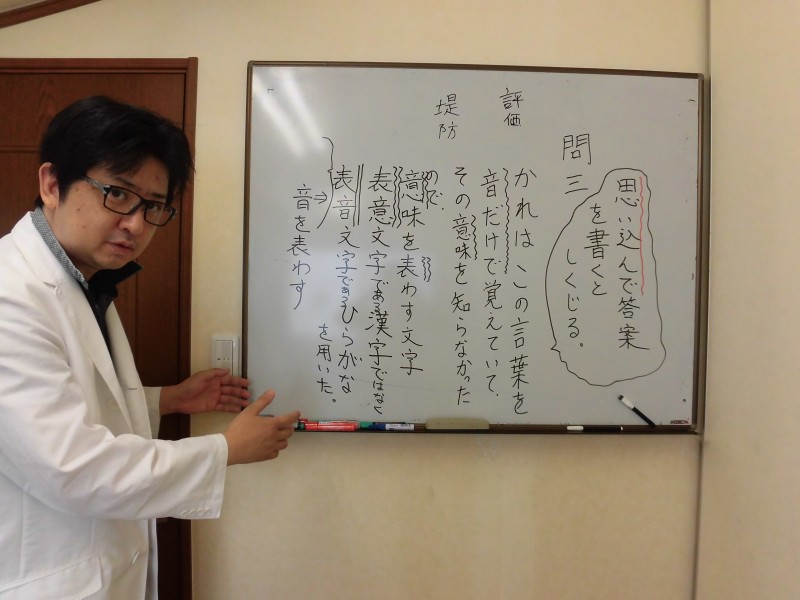 評価
堤防
問三
思い込んで答案
を書くと
しくじる。
かれはこの言葉を
音だけで覚えていて、
その意味を知らなかった
ので、
意味を表わす文字
表意文字である漢字ではなく
表音文字であるひらがな
を用いた。
⇒
音を表わす